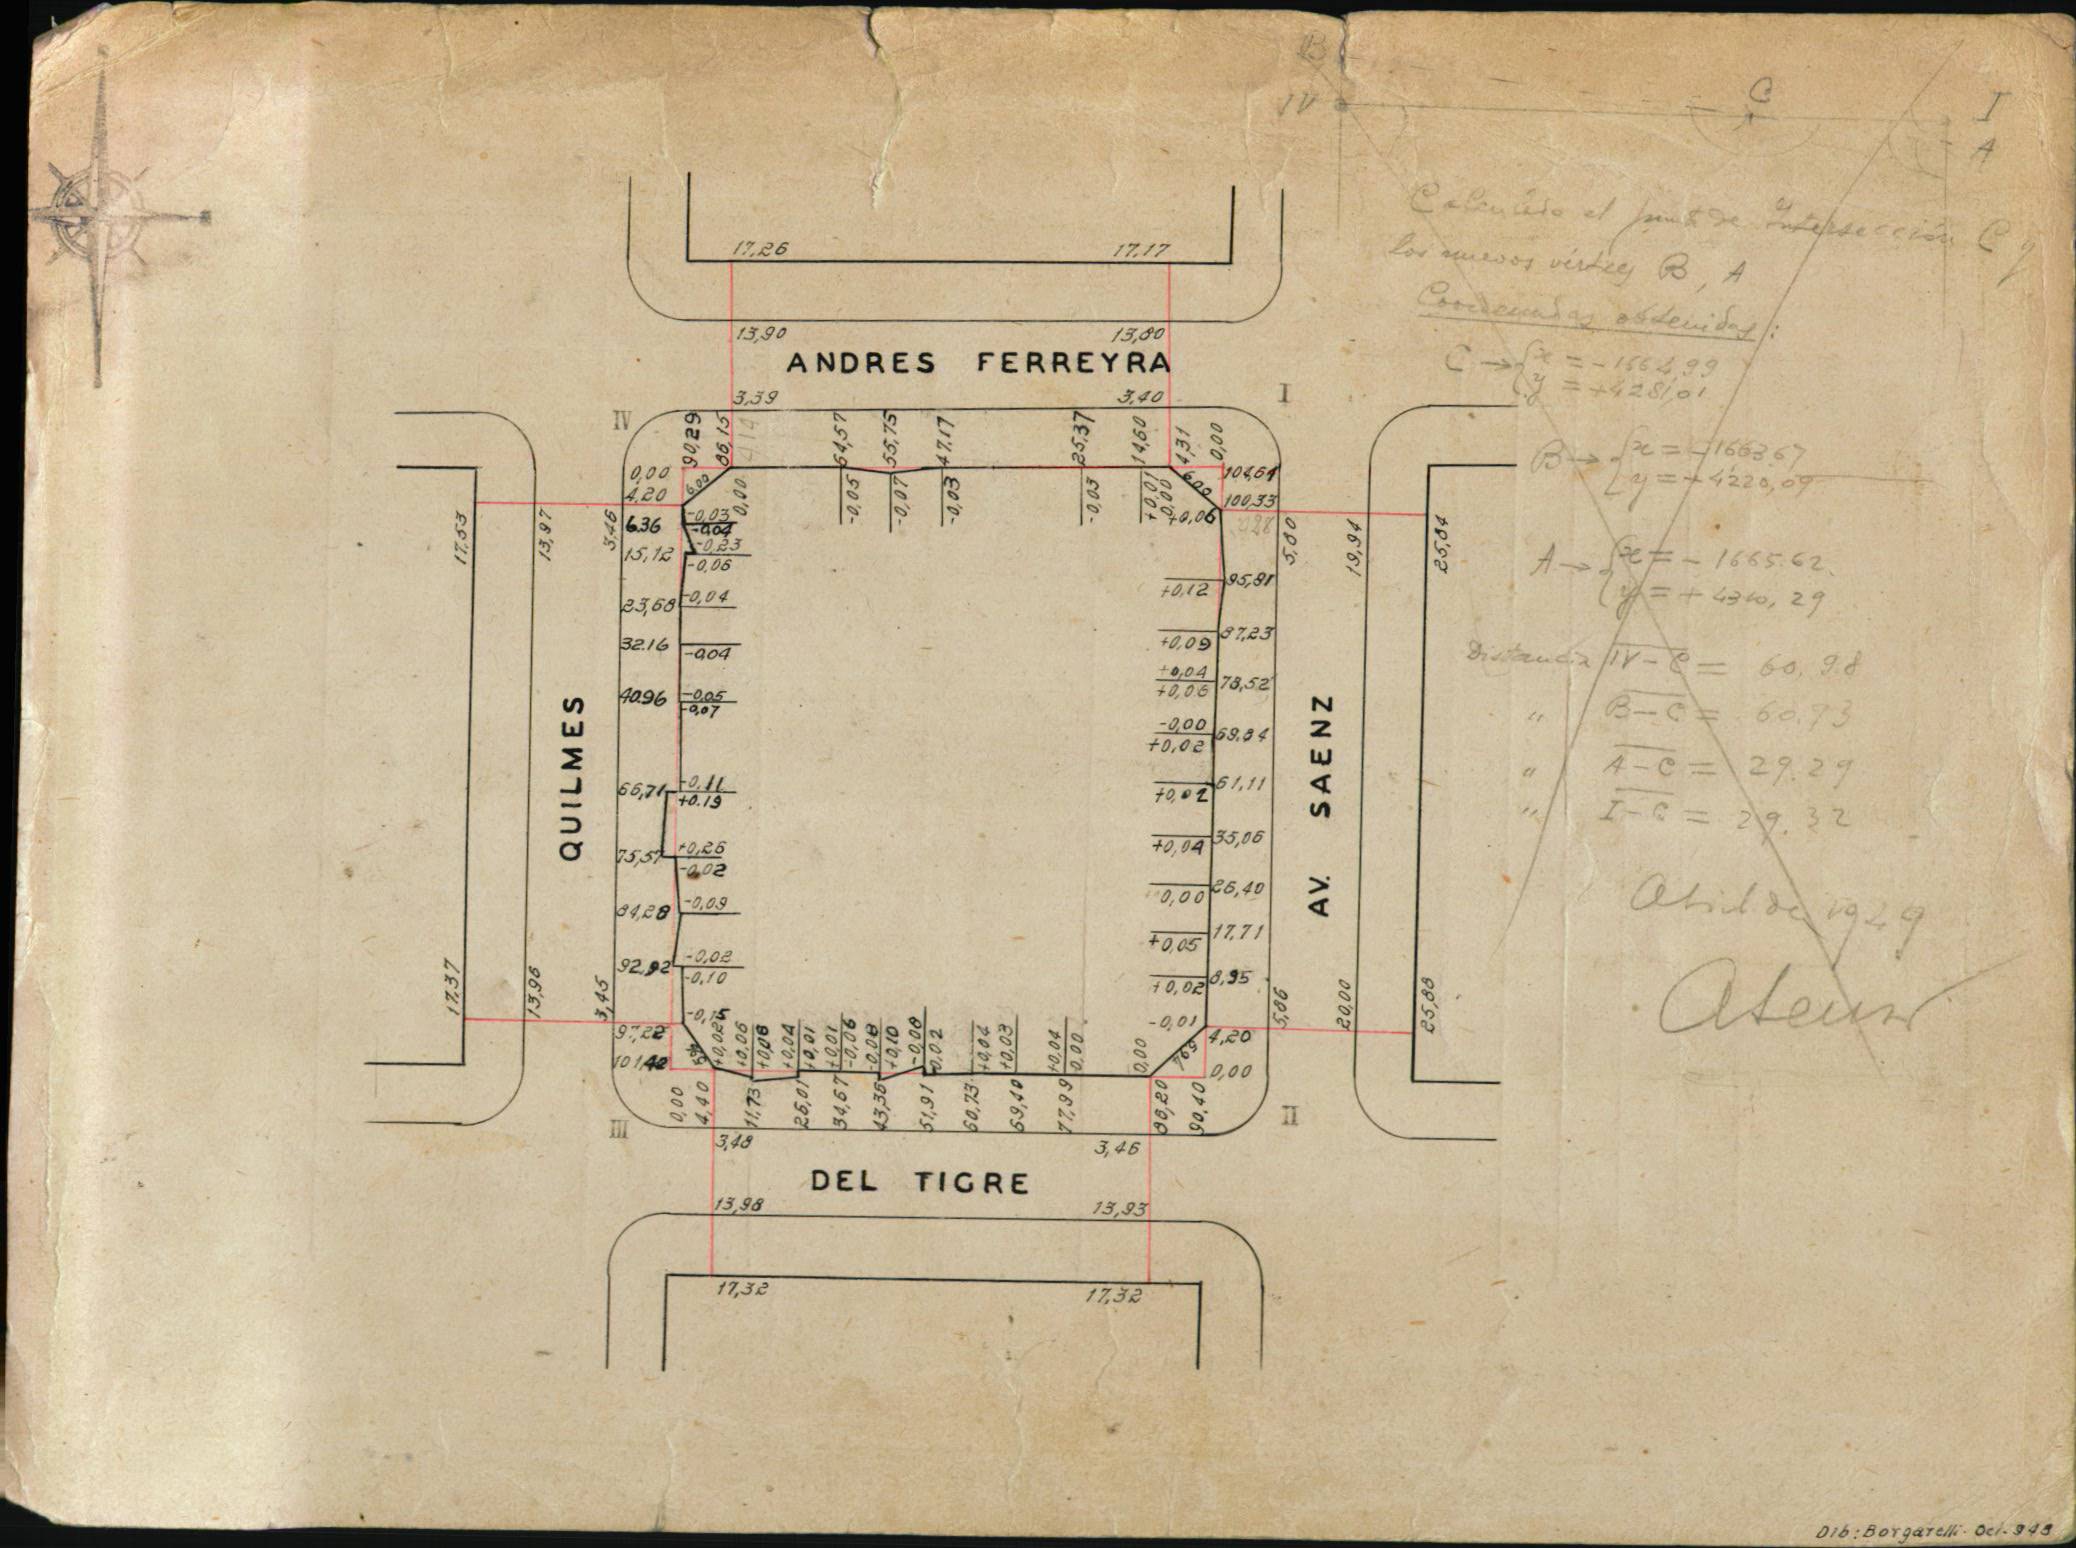 B
IV
C
I
A
Calculado el punto de Intersección C y
los nuevos vértices B, A
Coordenadas obtenidas:
C → x = -1664,99
y = +4281,01
B → x = -1663.67
y = +4220,09
A → x = -1665.62.
y = +4310,29
Distancia IV-C = 60.98
" B-C = 60.93
" A-C = 29.29
" I-C = 29.32
Abril de 1949
17,26 17,17
13,90 13,80
ANDRES FERREYRA
3,39 3,40
IV I
90,29 86,15 4,14 64,57 55,75 47,17 25,37 14,60 4,31 0,00
6,00 0,00 -0,05 -0,07 -0,03 -0,03 +0,01 0,00 6,00
17,53 13,97 3,46
0,00
4,20
6.36 -0,03 -0,04
15,12 -0,23 -0,06
23,68 -0,04
32.16 -0,04
40.96 -0,05 -0,07
66,71 -0,11 +0.19
75,57 +0,26 -0,02
84,28 -0,09
92,92 -0,02 -0,10
97,22
101,42
QUILMES
17,37 13,96 3,45
104,64
100,33 +0,06
95,81 +0,12
87,23 +0,09
78,52 +0,04 +0,06
69.84 -0,00 +0,02
61,11 +0,02
35,06 +0,04
26,40 0,00
17,71 +0,05
8,95 +0,02
4,20 -0,01
0,00
5,80 19,94 25,84
AV. SAENZ
5,86 20,00 25,88
+0,06 +0,08 +0,04 +0,01 +0,01 -0,06 -0,08 +0,10 -0,08 0,02 +0,04 +0,03 +0,04 0,00 0,00 5,94
0,00 4,40 11,73 26,01 34,67 43,36 51,91 60,73 69,40 77,99 86,20 90,40
III II
3,48 3,46
DEL TIGRE
13,98 13,93
17,32 17,32
Dib: Borgarelli - Oct - 948